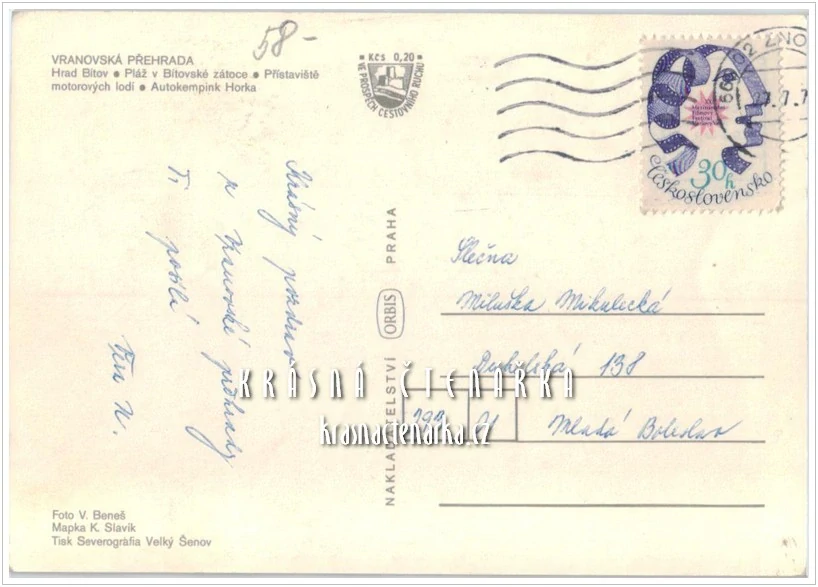 58-
VRANOVSKÁ PŘEHRADA
Hrad Bítov • Pláž v Bítovské zátoce • Přístaviště
motorových lodí • Autokempink Horka
• Kčs 0,20 •
VE PROSPĚCH CESTOVNÍHO RUCHU
669 02 ZNO
30h
Československo
Krásný pozdrav
z Vranovské přehrady
Ti posílá
NAKLADATELSTVÍ ORBIS PRAHA
Slečna
Miluška Mikulecká
138
293 01 Mladá Boleslav
KRÁSNÁ ČTENÁRKA
krasnactenarka.cz
Foto V. Beneš
Mapka K. Slavík
Tisk Severografia Velký Šenov